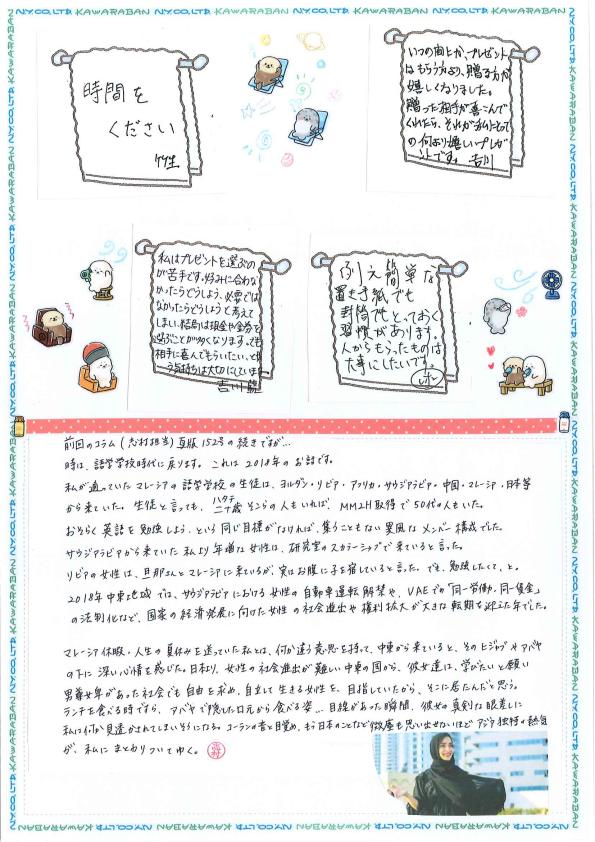 N.Y.CO.,LTD. KAWARABAN
時間を
ください
竹生
いつの間にか、プレゼント
はもらう方より、贈る方が
嬉しくなりました。
贈った相手が喜こんで
くれたら、それが私にとって
の何より嬉しいプレゼ
ントです。 吉川
私はプレゼントを選ぶの
が苦手です。好みに合わな
かったらどうしよう、必要では
なかったらどうしようと考えて
しまい、結局は現金や金券を
選ぶことが多くなります。でも
相手に喜んでもらいたい、とゆ
う気持ちは大切にしています
吉川
例え簡単な
置き手紙でも
封筒でもとっておく
習慣があります。
人からもらったものは
大事にしたいです。
前回のコラム(志村担当)瓦版152号の続きですが...
時は、語学学校時代に戻ります。これは2018年のお話です。
私が通っていたマレーシアの語学学校の生徒は、ヨルダン・リビア・アフリカ・サウジアラビア・中国・マレーシア・日本等
から来ていた。生徒と言っても、二十歳そこらの人もいれば、MM2H取得で50代の人もいた。
ハタチ
おそらく英語を勉強しよう、という同じ目標がなければ、集うこともない異風なメンバー構成でした。
サウジアラビアから来ていた私より年増な女性は、研究室のスカラーシップで来ていると言った。
リビアの女性は、旦那さんとマレーシアに来ているが、実はお腹に子を宿していると言った。でも、勉強したくて、と。
2018年中東地域では、サウジアラビアにおける女性の自動車運転解禁や、UAEでの「同一労働、同一賃金」
の法制化など、国家の経済発展に向けた女性の社会進出や権利拡大が大きな転期を迎えた年でした。
マレーシア休暇・人生の夏休みを送っていた私とは、何か違う意思を持って、中東から来ていると、そのヒジャブやアバヤ
の下に深い心情を感じた。日本より、女性の社会進出が難しい中東の国から、彼女達は、学びたいと願い
男尊女卑があった社会でも自由を求め、自立して生きる女性を、目指していたから、そこに居たんだと思う。
ランチを食べる時ですら、アバヤで隠した口元から食べる姿...目線があった瞬間、彼女の真剣な眼差しに
私は何か見透かされてしまいそうになる。コーランの音と目覚め、もう日本のことなど微塵も思い出せないほどアジア独特の熱気
が、私にまとわりついてゆく。 志村